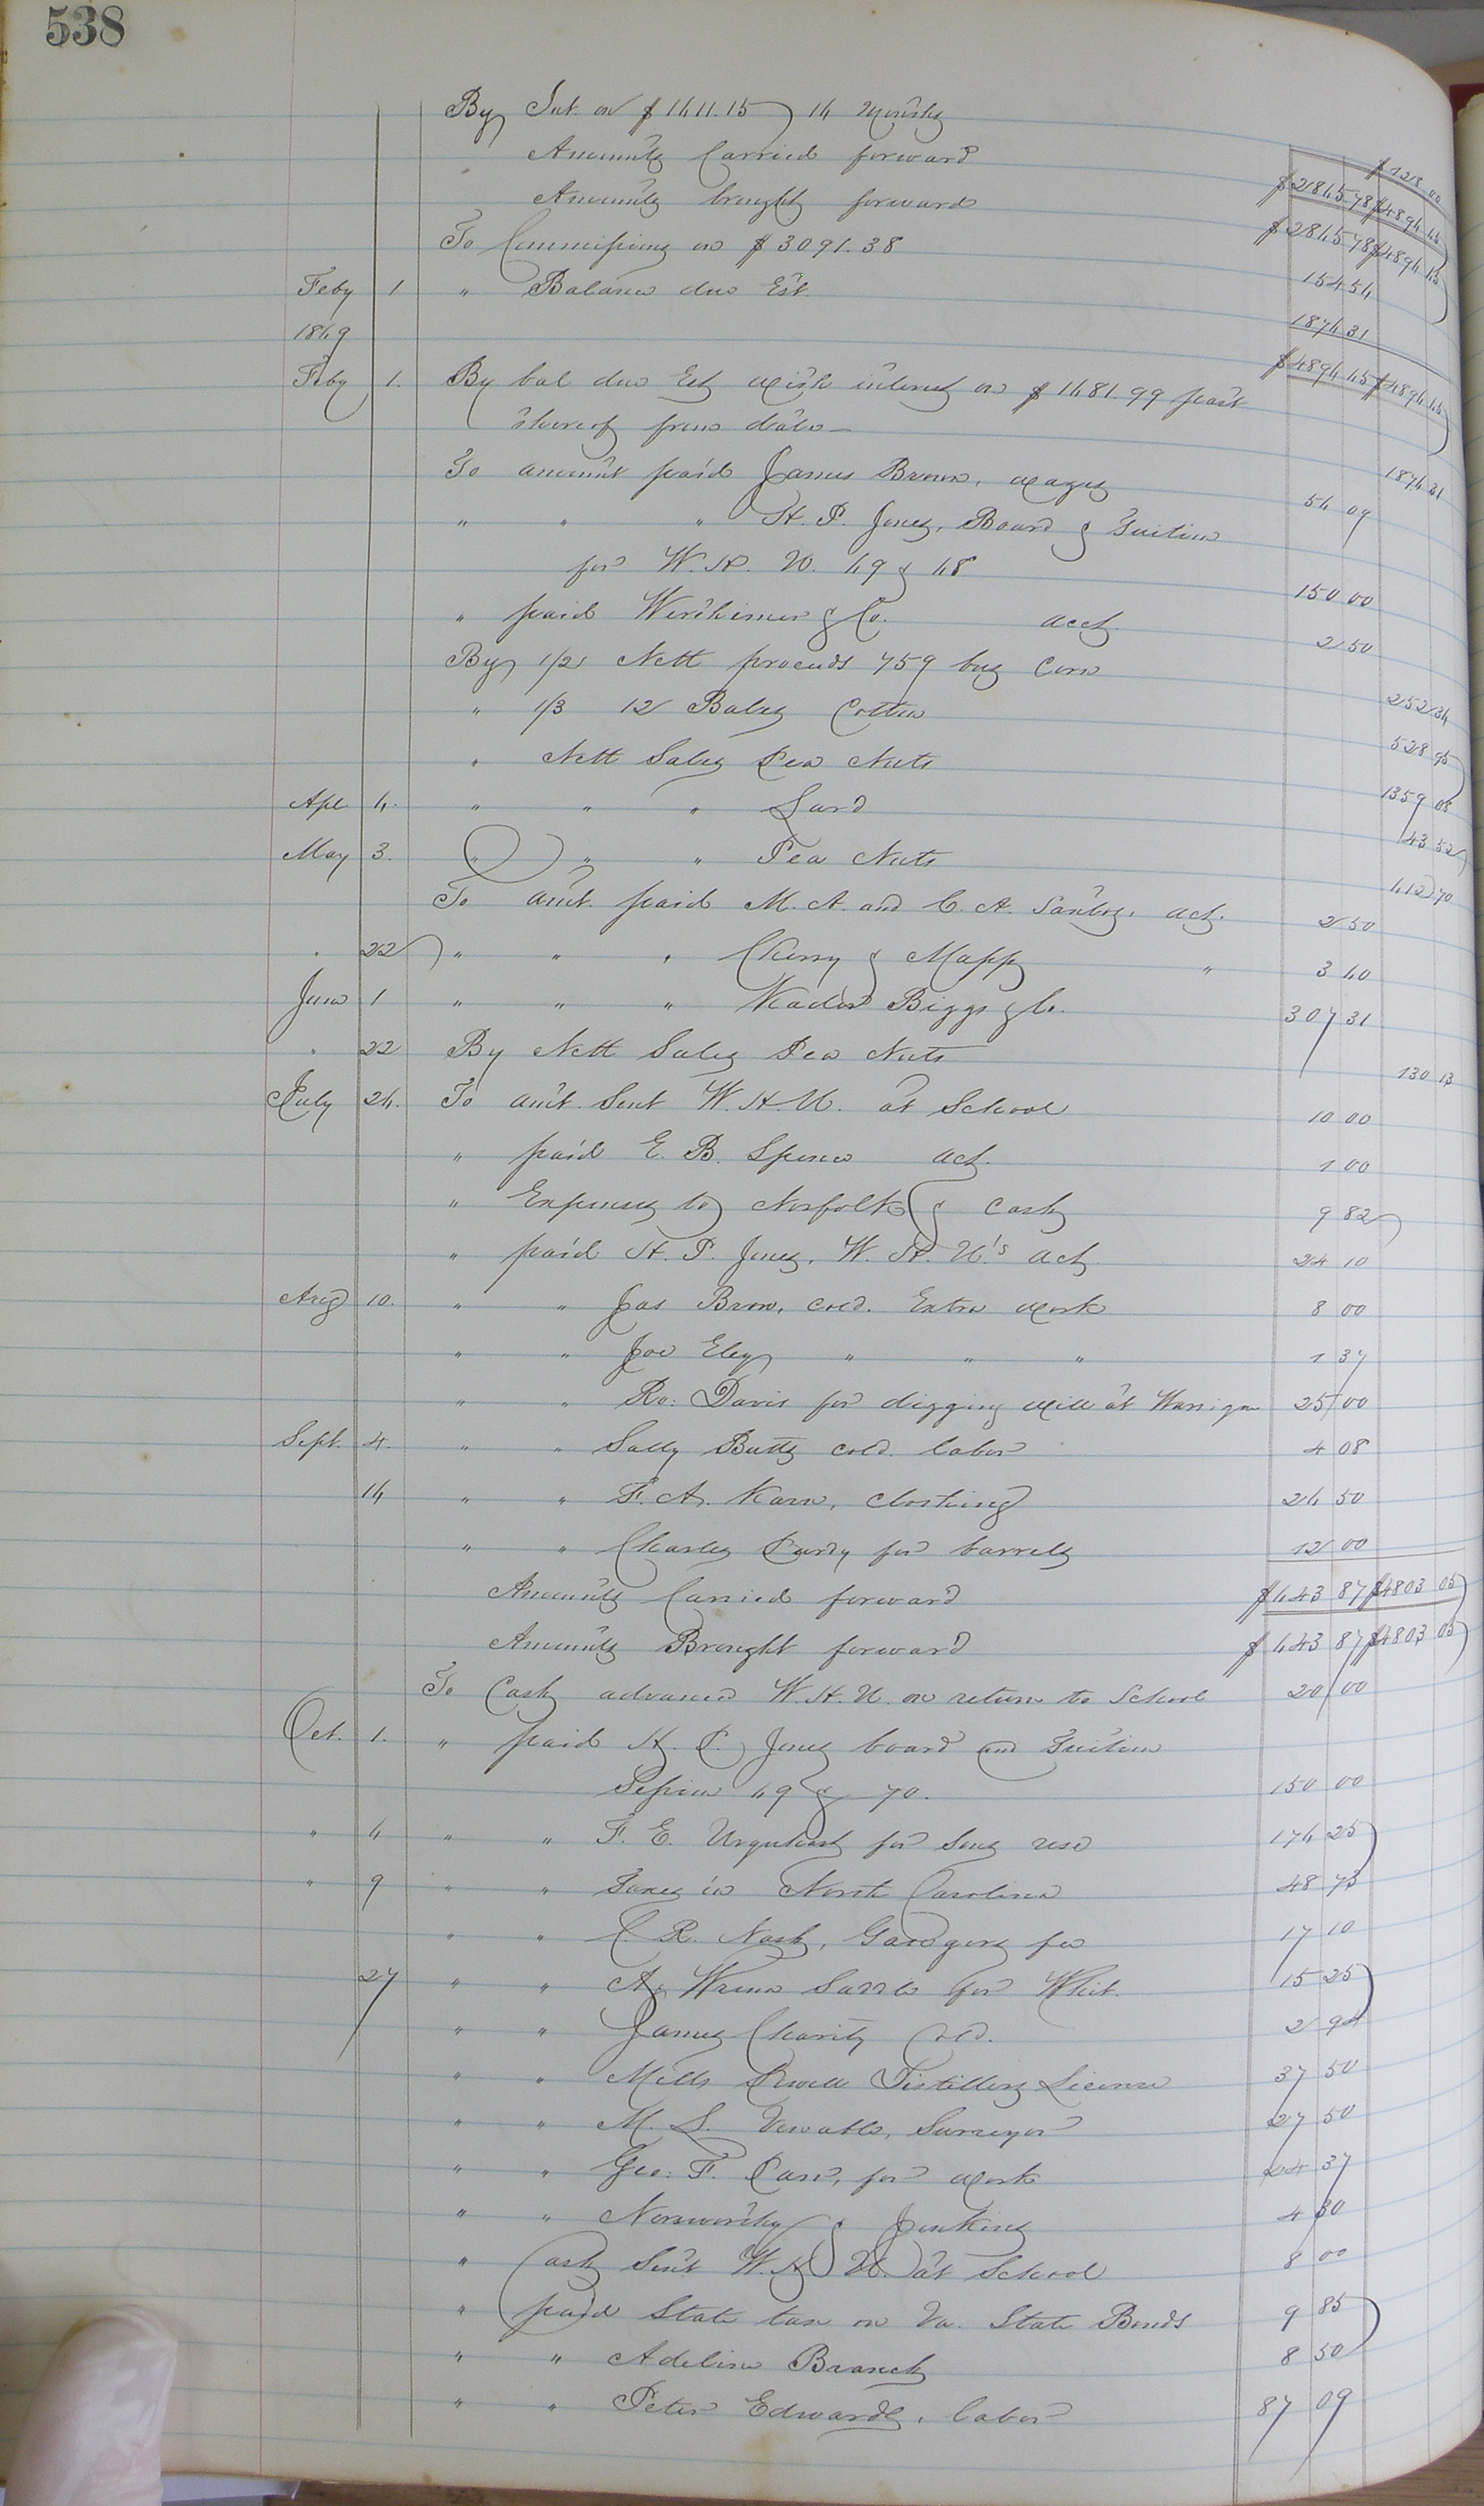 538
By Int. on $1611.15 16 Months $128 00
Amounts Carried forward $2865.78 $4894 65
Amounts brought forward $2865 78 $4894 65
To Commissions on $3091.38 154 54
Feby 1 " Balance due Est. 1874 31
1869 $4894 65 $4894 65
Feby 1. By bal due Est with interest on $1681.99 part
thereof from date — 1874 31
To amount paid James Brown, wages 56 09
" " " H. P. Jones, Board & Tuition
for W. H. U. 69 & 68 150 00
" paid Wertheimer & Co. acct. 2 50
By 1/2 Nett proceeds 759 bus Corn 252 36
" 1/3 12 Bales Cotton 528 95
" Nett Sales Pea Nuts 1359 08
Apl 6. " " " Lard 43 52
May 3. " " " Pea Nuts 612 70
To amt. paid M. A. and C. A. Santos, act. 2 50
" 22 " " " Cherry & Mapp " 3 60
June 1 " " " Kader Biggs & Co. 307 31
" 22 By Nett Sales Pea Nuts 130 13
July 26. To amt. Sent W. H. U. at School 10 00
" paid E. B. Spence act. 1 00
" Expenses to Norfolk & Cash 9 82
" paid H. P. Jones, W. H. U's act 24 10
Aug 10. " " Jas Brow, cold. Extra work 8 00
" " Joe Eley " " " 1 37
" " Ro: Davis for digging well at 25 00
Sept. 4. " " Sally Butts cold. labor 4 08
16 " " F. A. Karn, clothing 26 50
" " Charles Purdy for barrels 12 00
Amounts Carried forward $643 87 $4803 05
Amounts Brought forward $643 87 $4803 05
To Cash advanced W. H. U. on return to School 20 00
Oct. 1. " paid H. P. Jones board and Tuition
Session 69 & 70. 150 00
" 6 " " F. E. Urquhart for Sons use 176 25
" 9 " " Taxes in North Carolina 48 73
" " C. R. Nash, Gaugers fee 17 10
27 " " A. Wrenn Saddle for Whit. 15 25
" " James Charity Cold. 2 94
" " Mills Powell Distillery License 37 50
" " M. S. Venable, Surveyor 27 50
" " Geo: F. Parr, for work 24 37
" " Norsworthy & Jenkins 4 30
" Cash Sent W. H. U. at School 8 00
" paid State tax on Va. State Bonds 9 85
" " Adeline Branch 8 50
" " Peter Edwards, labor 87 09